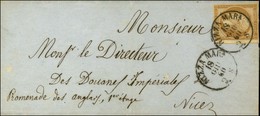 Monsieur
Monsʳ le Directeur
Des Douanes Impériales
Promenade des anglais, 1ᵉʳ étage
Nice